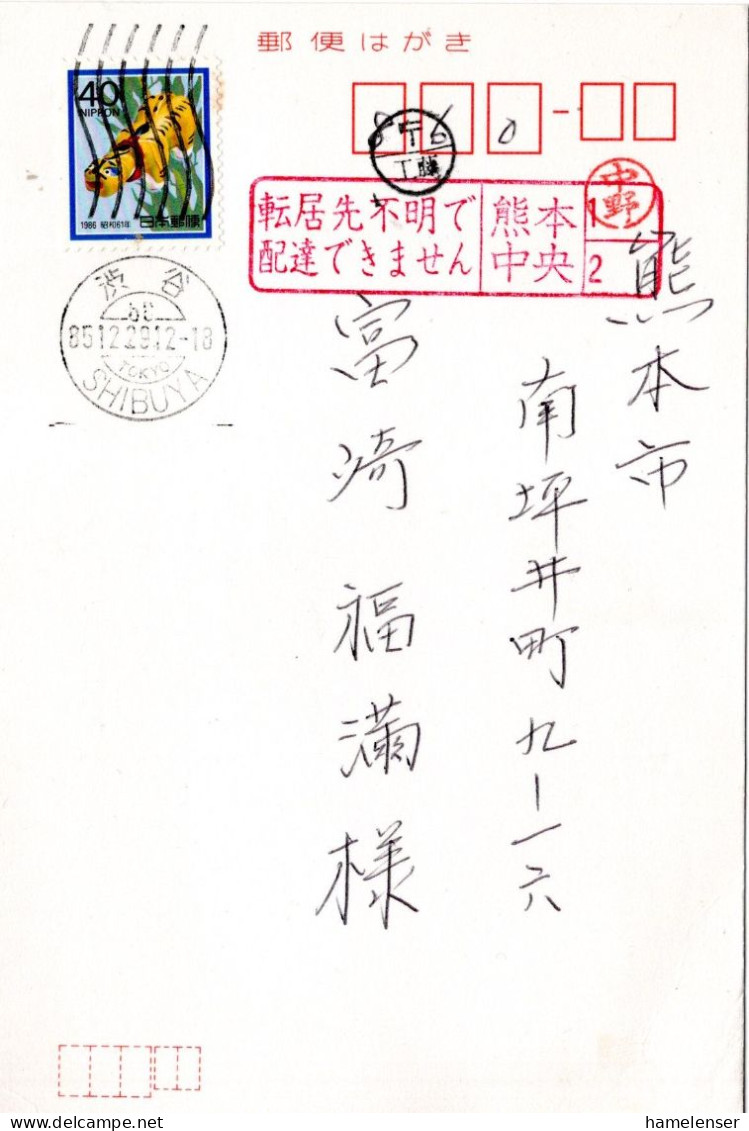 郵便はがき
40
NIPPON
1986 昭和61年 日本郵便
渋谷
85 12.29 12-18
TOKYO
SHIBUYA
860
転居先不明で
配達できません
熊本
中央
1
2
中野
熊本市
南坪井町九-一六
富崎福満様
hamelenser